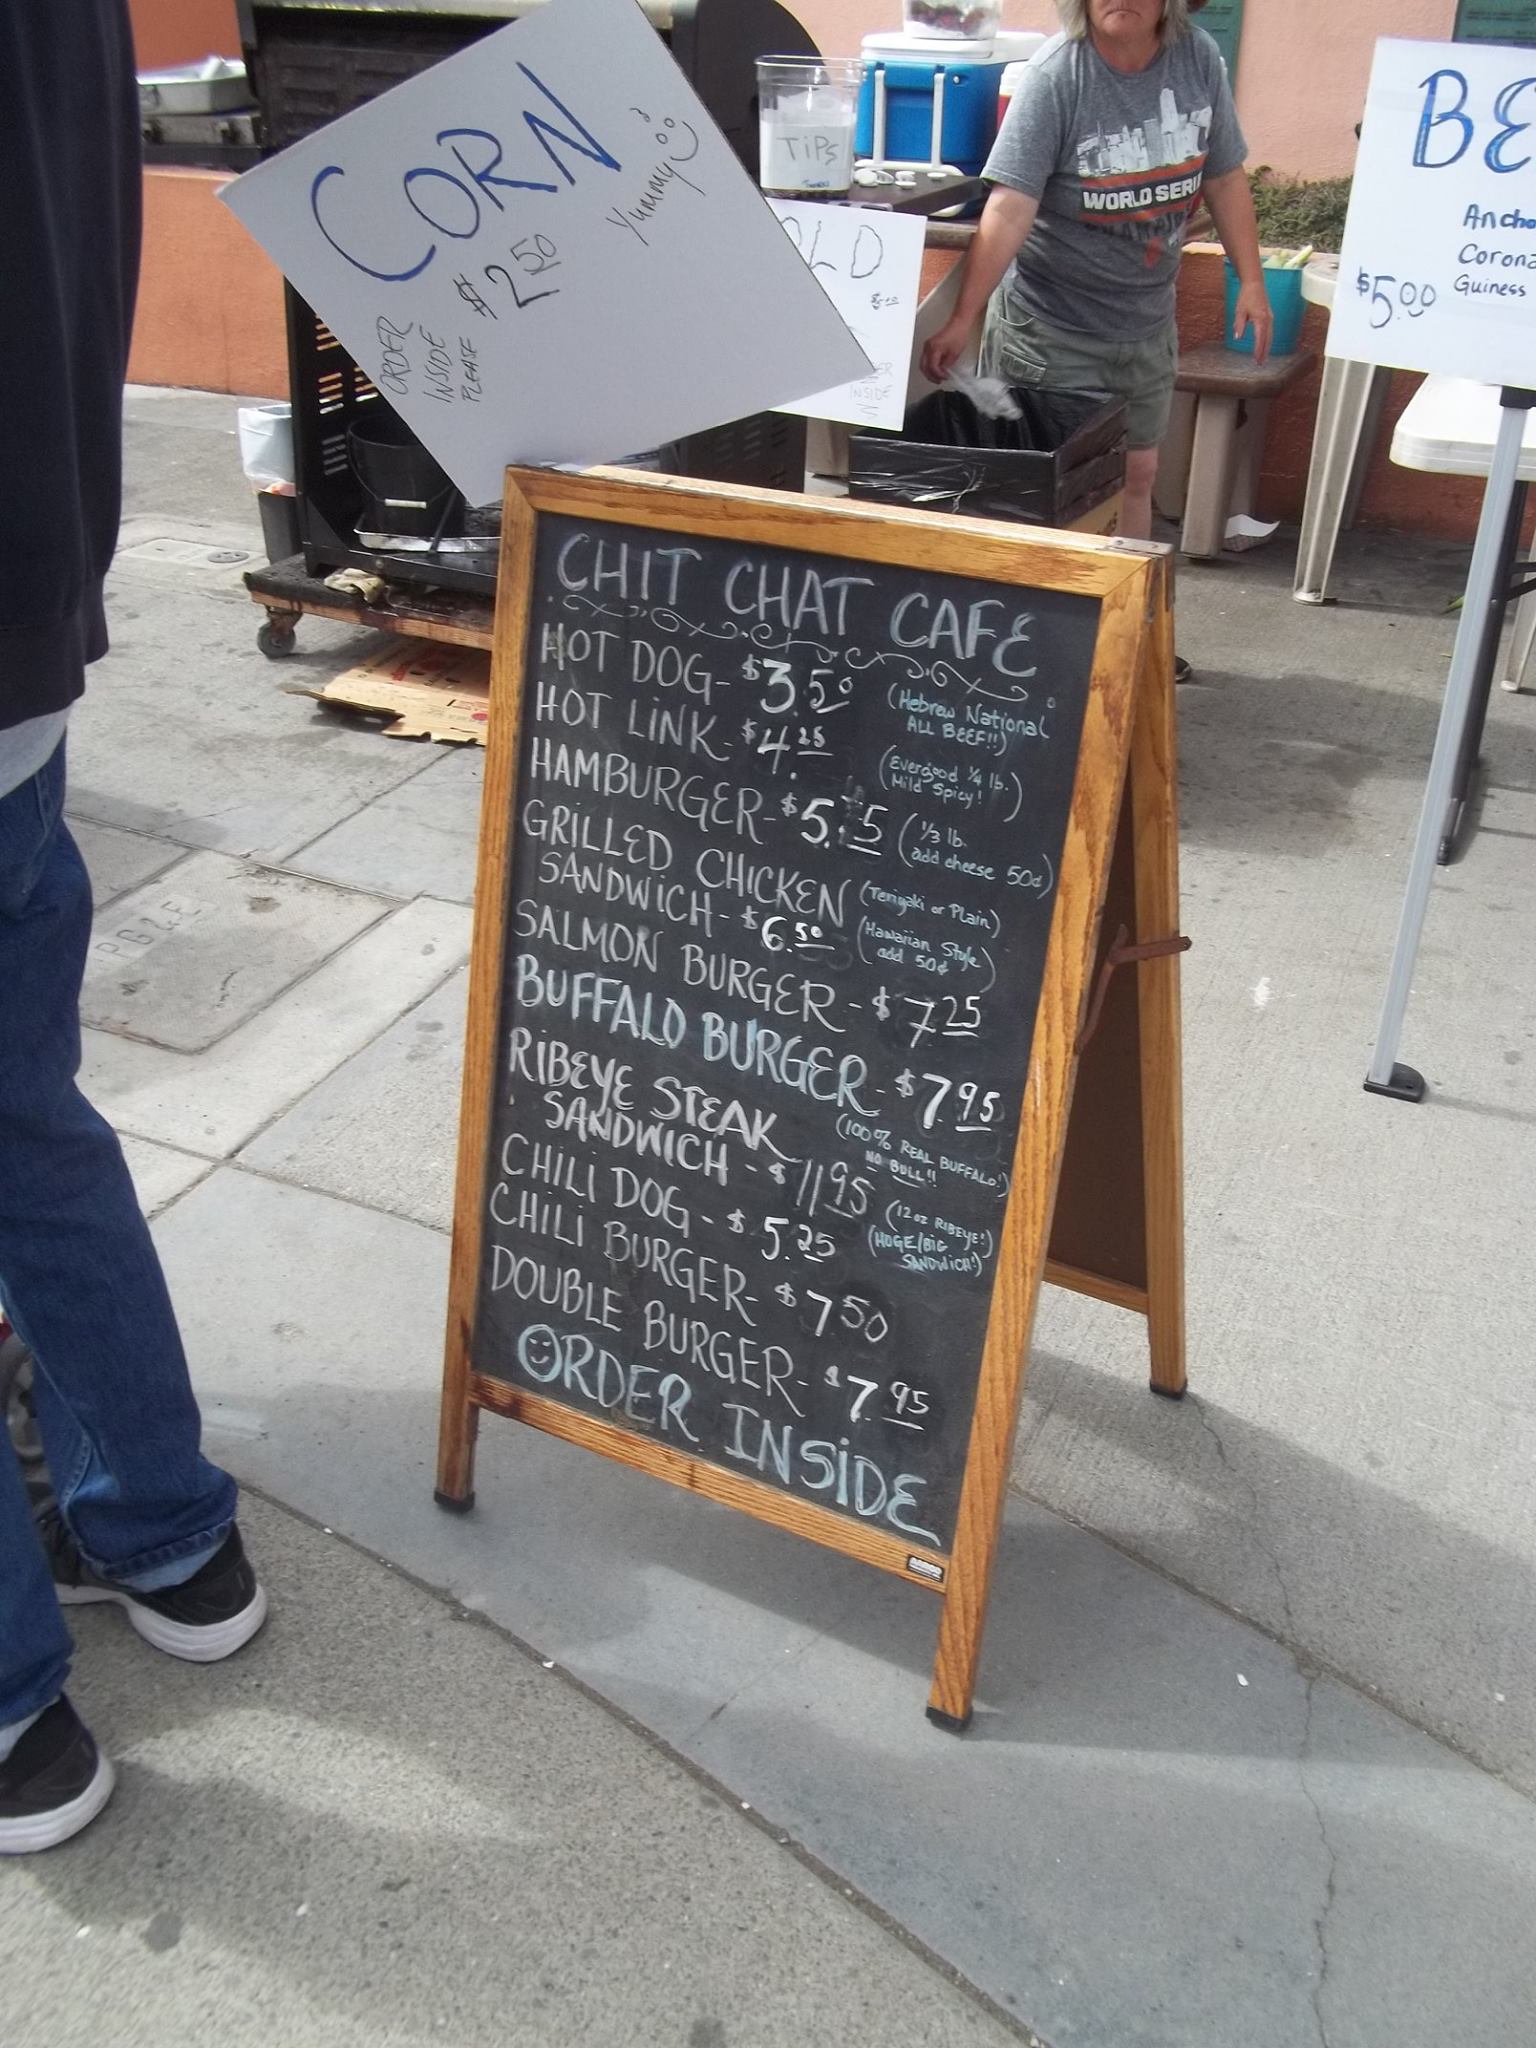 CORN
$2.50
Yummy
ORDER
INSIDE
PLEASE
TIPS
LD
INSIDE
WORLD SERI
$5.00
Corona
Guiness
CHIT CHAT CAFE
HOT DOG - $3.50 (Hebrew National
ALL BEEF!!)
HOT LINK - $4.25 (Evergood 1/4 lb.
Mild Spicy!)
HAMBURGER - $5. (1/3 lb.
add cheese 50¢)
GRILLED CHICKEN (Teriyaki or Plain)
SANDWICH - $6.50 (Hawaiian Style
add 50¢)
SALMON BURGER - $7.25
BUFFALO BURGER - $7.95
(100% REAL BUFFALO!
NO BULL!!)
RIBEYE STEAK
SANDWICH - $11.95 (12 oz RIBEYE!)
(HUGE/BIG
SANDWICH!)
CHILI DOG - $5.25
CHILI BURGER - $7.50
DOUBLE BURGER - $7.95
ORDER INSIDE